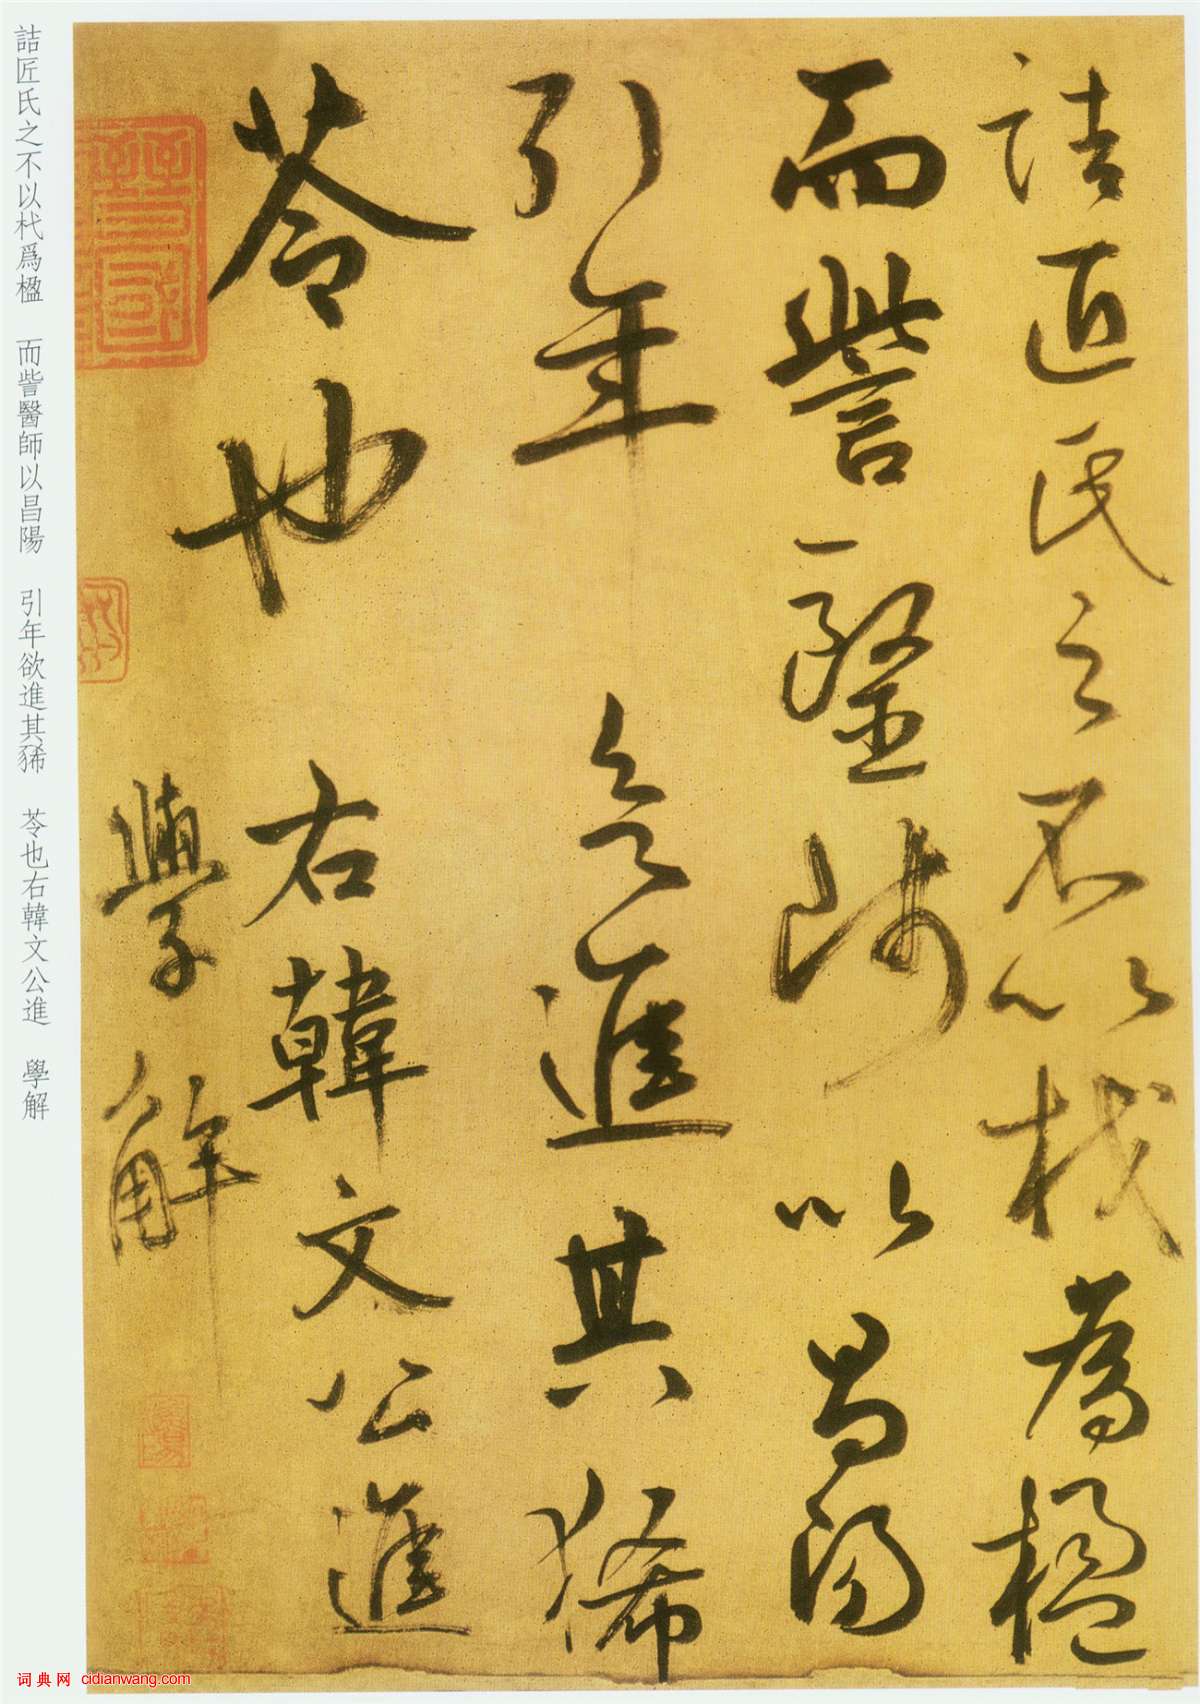 詰匠氏之不以杙為楹
而訾醫師以昌陽
引年欲進其豨
苓也右韓文公進
學解
詰匠氏之不以杙爲楹 而訾醫師以昌陽 引年欲進其豨 苓也右韓文公進 學解
词典网 cidianwang.com